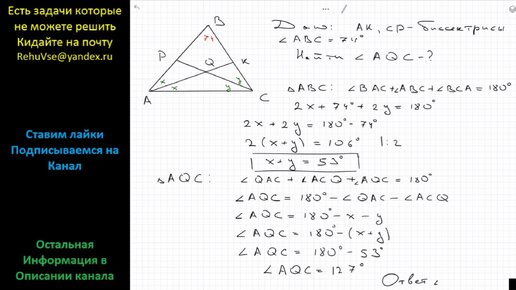 Есть задачи которые
не можете решить
Кидайте на почту
RehuVse@yandex.ru
Ставим лайки
Подписываемся на
Канал
Остальная
Информация в
Описании канала
B
74
P
Q
K
x
x
y
y
A
C
Дано: AK, CP - биссектрисы
∠ABC = 74°
Найти ∠AQC - ?
△ABC: ∠BAC + ∠ABC + ∠BCA = 180°
2x + 74° + 2y = 180°
2x + 2y = 180° - 74°
2(x + y) = 106° | : 2
x + y = 53°
△AQC: ∠QAC + ∠ACQ + ∠AQC = 180°
∠AQC = 180° - ∠QAC - ∠ACQ
∠AQC = 180° - x - y
∠AQC = 180° - (x + y)
∠AQC = 180° - 53°
∠AQC = 127°
Ответ